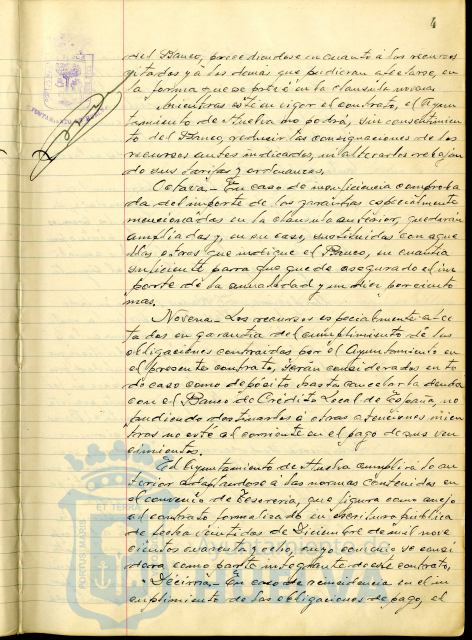 4
del Banco, procediendose en cuanto á los recursos
citados y á los demas que pudieran afectarse, en
la forma que se prevé en la clausula novena.
Mientras esté en vigor el contrato, el Ayun-
tamiento de Huelva no podrá, sin consentimien-
to del Banco, reducir las consignaciones de los
recursos antes indicados, ni alterarlos rebajan-
do sus tarifas y ordenanzas.
Octava.- En caso de insuficiencia comproba-
da del importe de las garantias especialmente
mencionadas en la clausula anterior, quedarán
ampliadas y, en su caso, sustituidas con aque-
llas otras que indique el Banco, en cuantia
suficiente para que quede asegurado el im-
porte de la anualidad y un diez por ciento
mas.
Novena.- Los recursos especialmente afecta-
dos en garantia del cumplimiento de las
obligaciones contraidas por el Ayuntamiento en
el presente contrato, serán considerados en to-
do caso como depósito hasta cancelar la deuda
con el Banco de Crédito Local de España, no
pudiendo destinarlos á otras atenciones mien-
tras no esté al corriente en el pago de sus ven-
cimientos.
El Ayuntamiento de Huelva cumplirá lo an-
terior adaptandose á las normas contenidas en
el convenio de Tesoreria, que figura como anejo
al contrato formalizado en escritura pública
de fecha veintidos de Diciembre de mil nove-
cientos cuarenta y ocho, cuyo convenio se consi-
dera como parte integrante de este contrato.
Décima.- En caso de reincidencia en el in-
cumplimiento de las obligaciones de pago, el
PORTUS MARIS
ET TERRAE